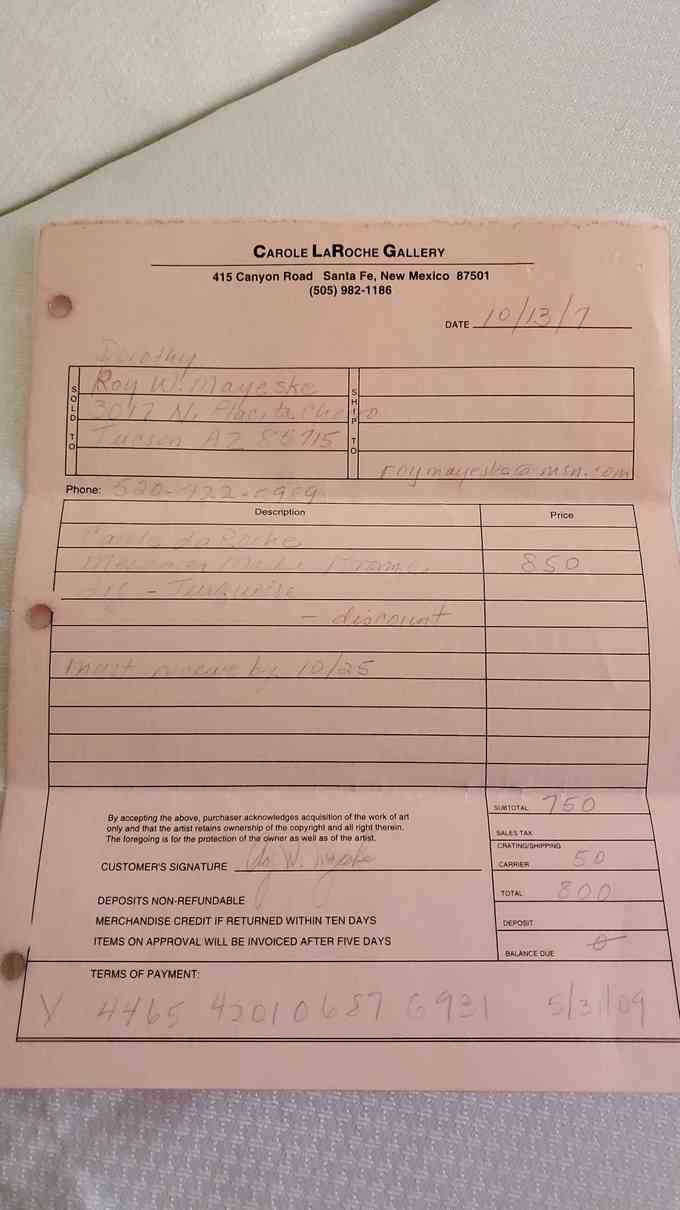 CAROLE LAROCHE GALLERY
415 Canyon Road Santa Fe, New Mexico 87501
(505) 982-1186
DATE 10/13/7
Dorothy
SOLD TO
Roy W. Mayeske
N. Placita
Tucson AZ 85715
SHIP TO
roymayeske@msn.com
Phone:
Description Price
Carole LaRoche
850
- Turquoise
- discount
must receive by 10/25
SUBTOTAL 750
SALES TAX
CRATING/SHIPPING
CARRIER 50
TOTAL 800
DEPOSIT
BALANCE DUE 0
By accepting the above, purchaser acknowledges acquisition of the work of art
only and that the artist retains ownership of the copyright and all right therein.
The foregoing is for the protection of the owner as well as of the artist.
CUSTOMER'S SIGNATURE
DEPOSITS NON-REFUNDABLE
MERCHANDISE CREDIT IF RETURNED WITHIN TEN DAYS
ITEMS ON APPROVAL WILL BE INVOICED AFTER FIVE DAYS
TERMS OF PAYMENT:
V [card number omitted] 5/31/09